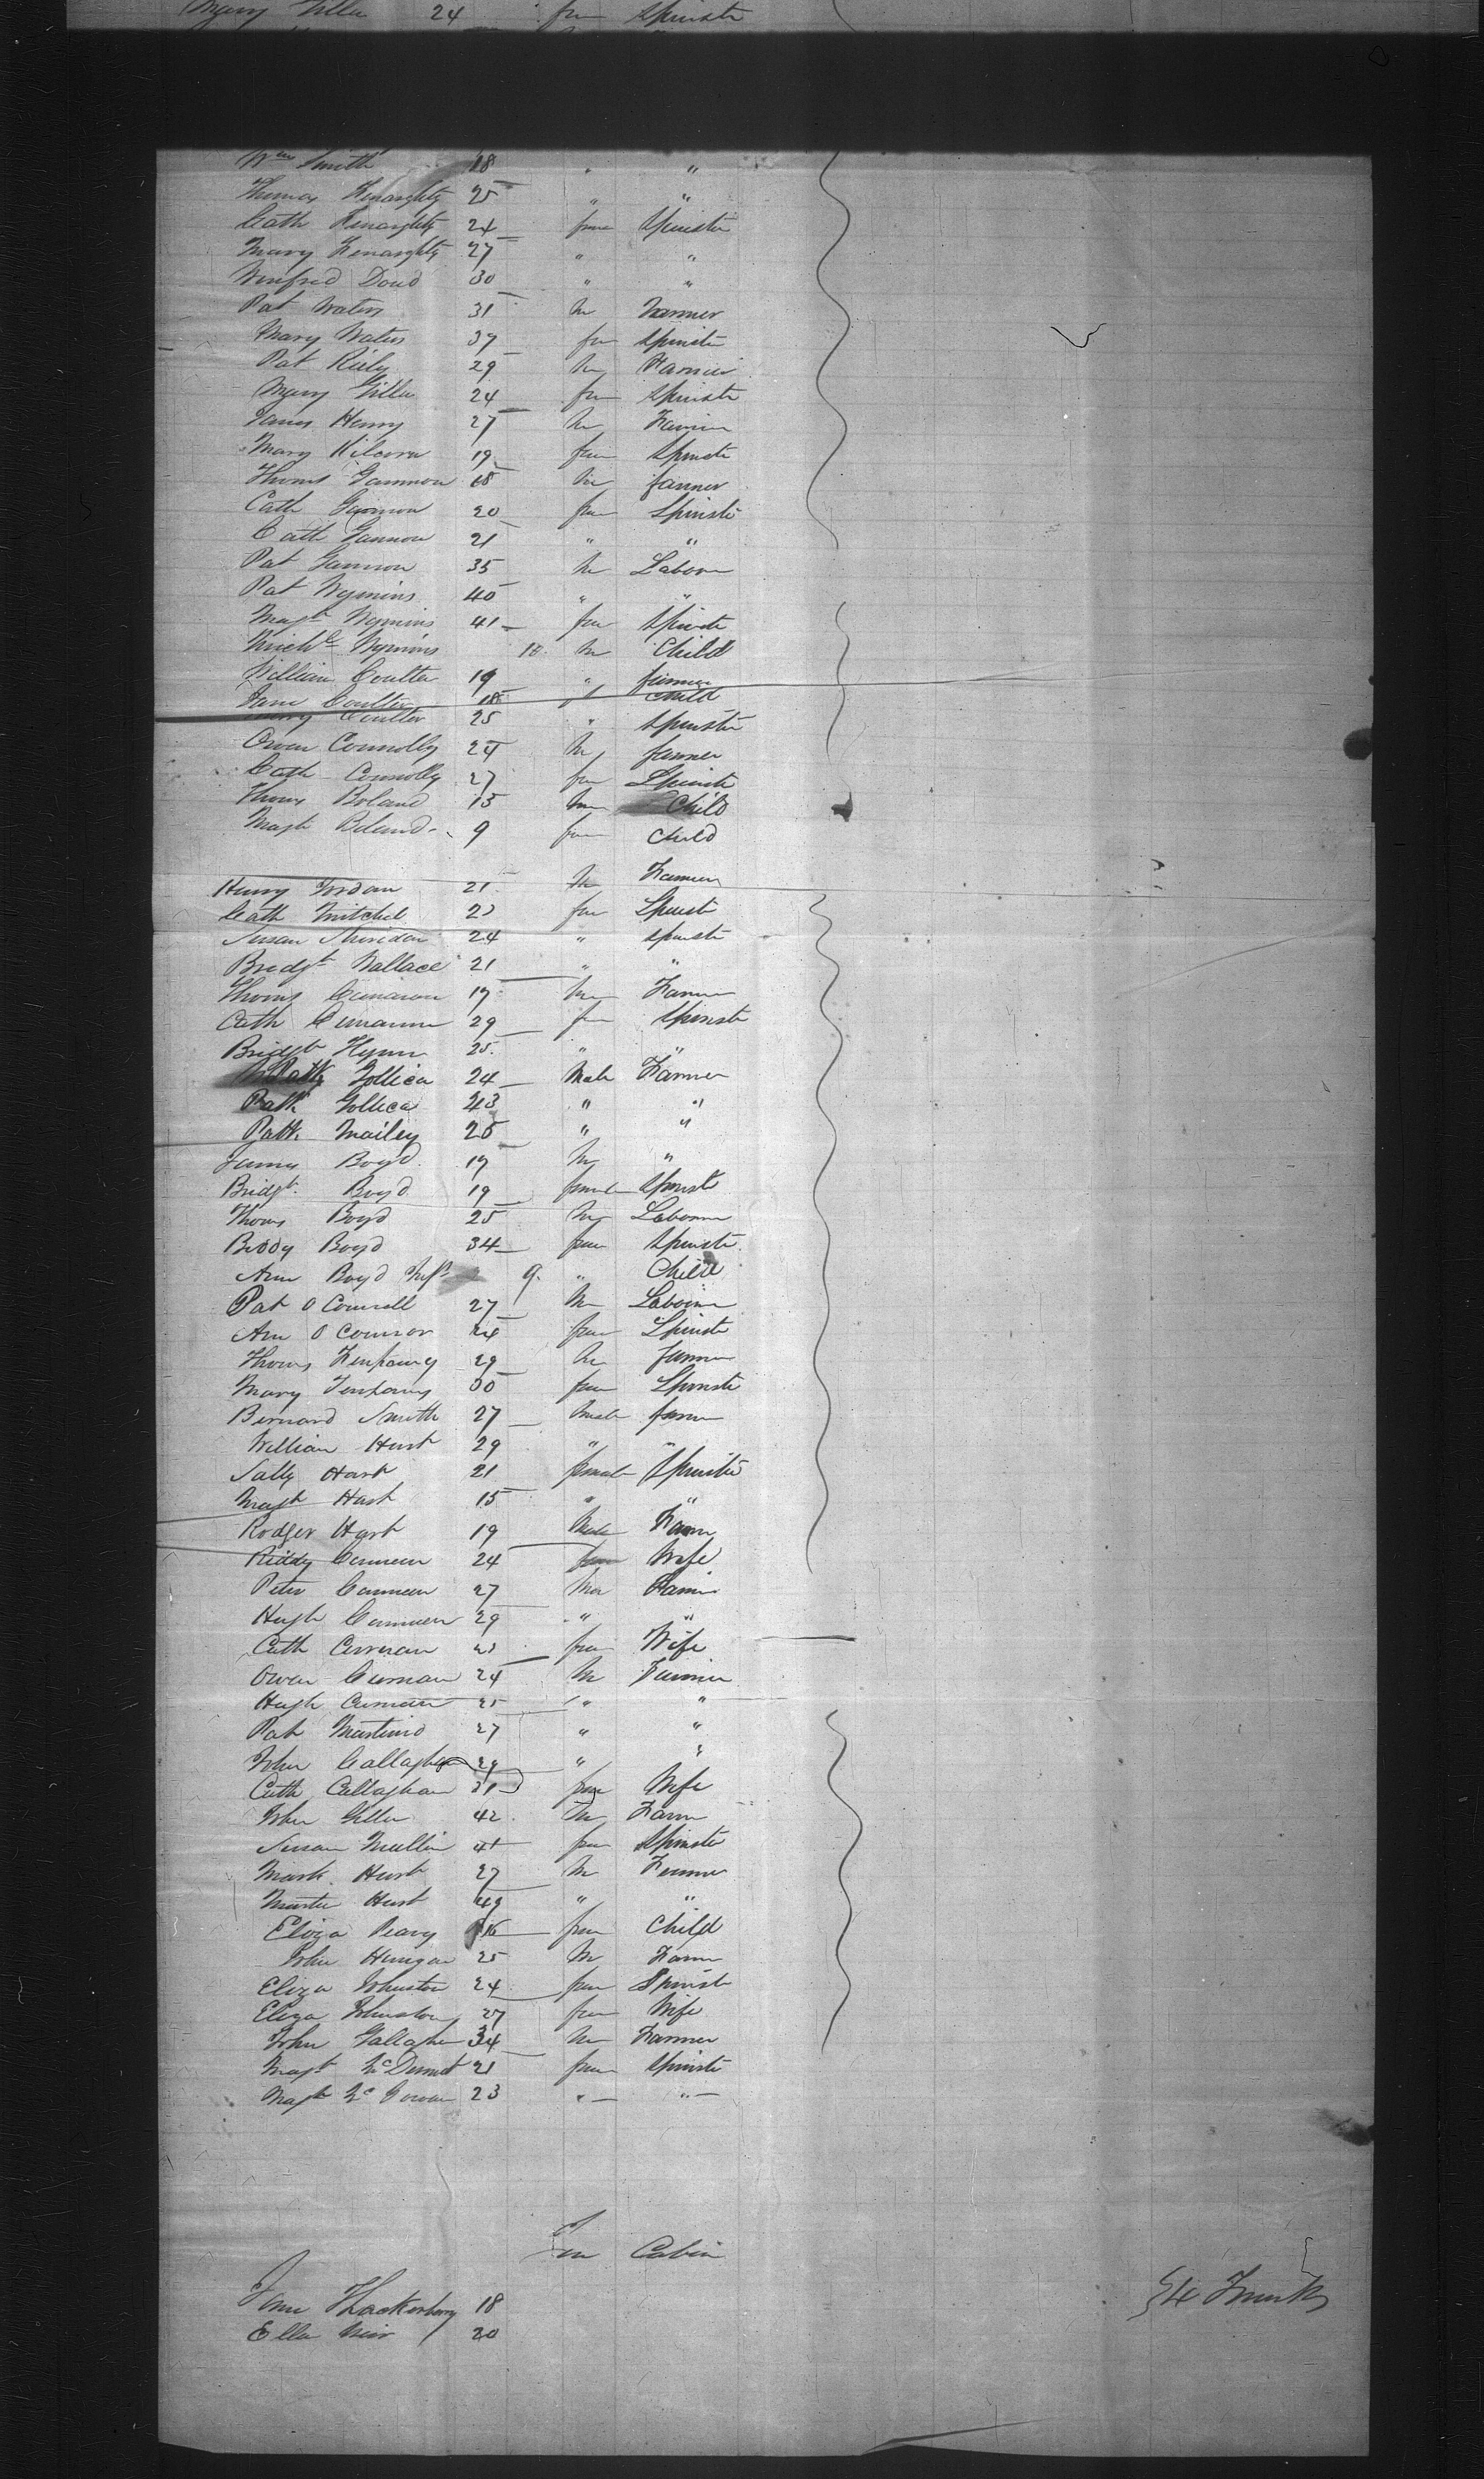 Mary Gilla 24 fem Spinster
Wm Smith 18 " "
Thomas Kenaghty 25 " "
Cath Kenaghty 24 fem Spinster
Mary Kenaghty 27 " "
Winfred Doud 30 " "
Pat Waters 31 M Farmer
Mary Waters 37 fem Spinster
Pat Riely 29 M Farmer
Mary Gilla 24 fem Spinster
James Henry 27 M Farmer
Mary Kilcorn 19 fem Spinster
Thoms Gannon 18 M farmer
Cath Gannon 20 fem Spinster
Cath Gannon 21 " "
Pat Gannon 35 M Laborer
Pat Wymins 40 " "
Magt Wymins 41 fem Spinster
Michl Wymins 18 M Child
William Coulter 19 " farmer
Jane Coulter 18 f Child
Mary Coulter 25 " Spinster
Owen Connolly 24 M farmer
Cath Connolly 27 fem Spinster
Thoms Boland 13 M Child
Magt Boland 9 fem Child
Henry Jordan 21 M Farmer
Cath Mitchel 23 fem Spinster
Susan Sheridan 24 " Spinster
Bredgt Wallace 21 " "
Thoms 19 M Farmer
Cath 29 f Spinster
Bridgt Flynn 25 " "
Gollica 24 Male Farmer
Patk Gollica 23 " "
Patk Mailey 25 " "
James Boyd 19 M "
Bridgt Boyd 19 female Spinster
Thoms Boyd 25 M Laborer
Biddy Boyd 34 fem Spinster
Ann Boyd Inft 9 " Child
Pat O Connell 27 M Laborer
Ann O Connor 24 fem Spinster
Thoms 29 M farmer
Mary 30 fem Spinster
Bernard Smith 27 Male farm
William Hart 29 " "
Sally Hart 21 female Spinster
Magt Hart 15 " "
Rodger Hart 19 Male Farm
Biddy 24 fem Wife
Peter 27 M Farmer
Hugh 29 " "
Cath 23 fem Wife
Owen 24 M Farmer
Hugh 25 " "
Pat 27 " "
John Callaghan 29 " "
Cath Callaghan 31 fem Wife
John Gilla 42 M Farm
Susan Mullin 41 fem Spinster
Mark Hart 27 M Farmer
Martin Hart 49 " "
Eliza Peary 16 fem Child
John 25 M Farm
Eliza Johnston 24 fem Spinster
Eliza Johnston 27 fem Wife
John Gallagher 34 M Farmer
Magt McDermot 21 fem Spinster
Magt McGowan 23 " "
In Cabin
Jane Thackerberry 18
Ella Weir 20
54 Trunks